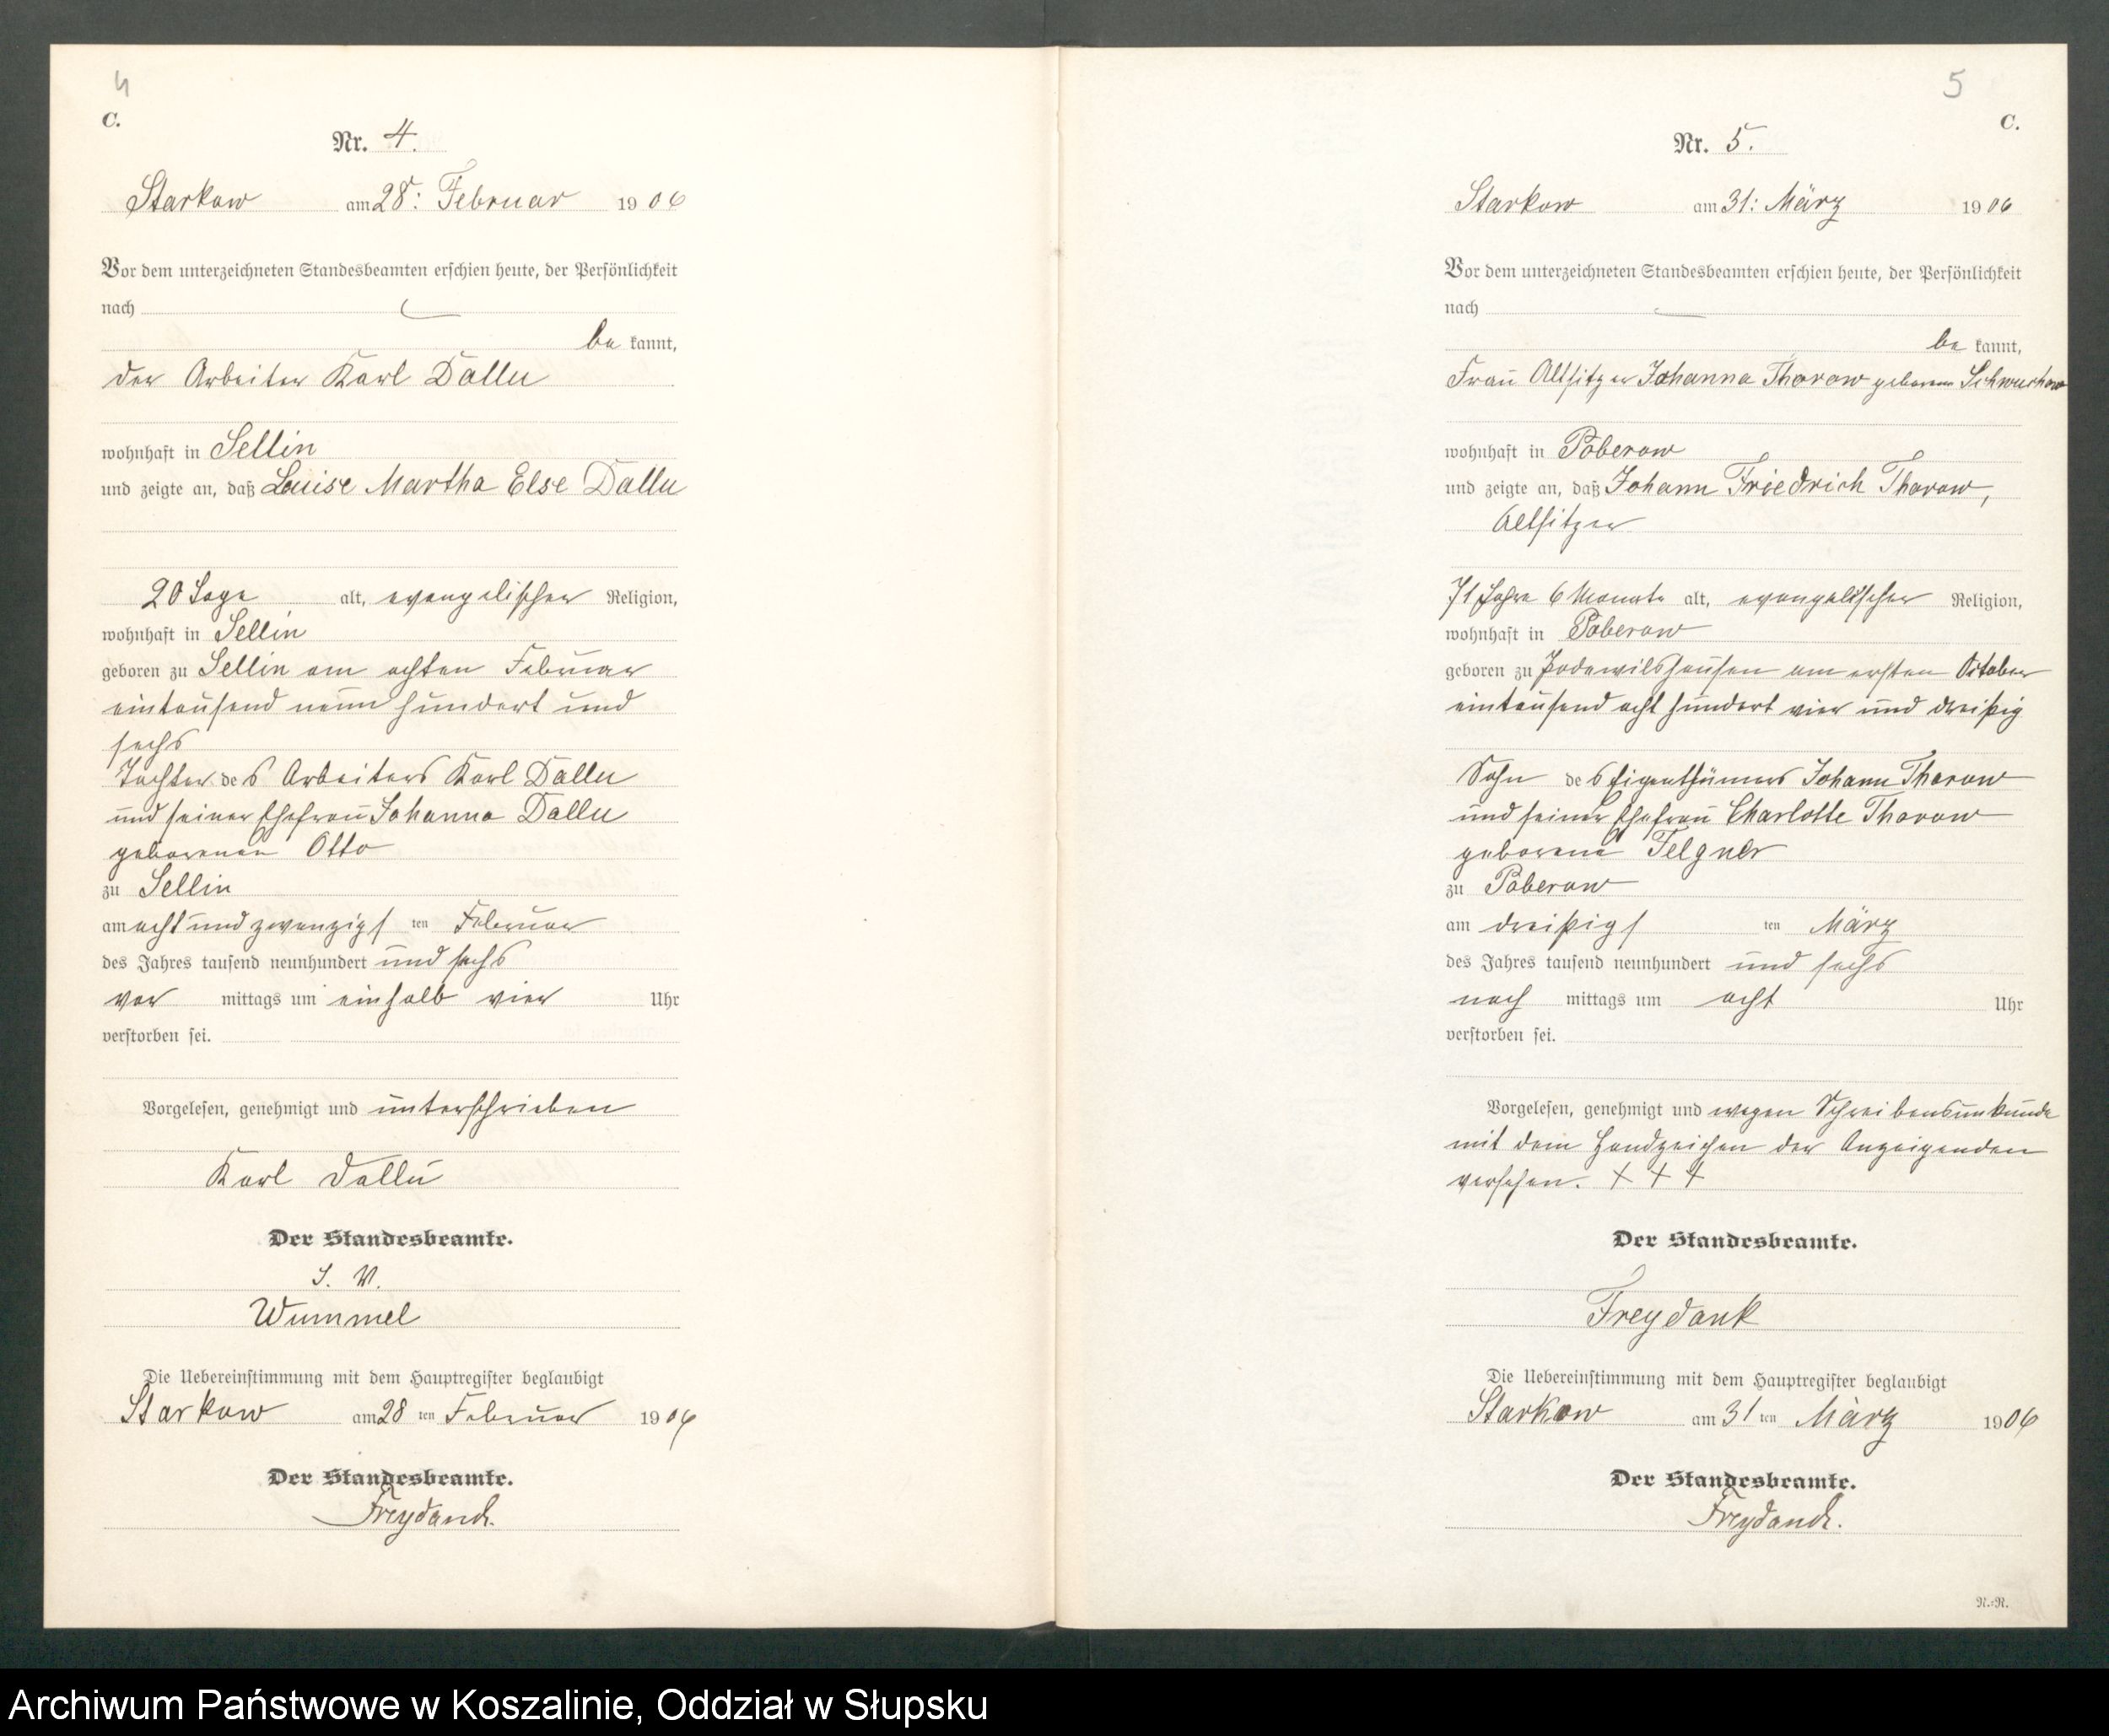 4
C.
Nr. 4.
Starkow am 28: Februar 1906
Vor dem unterzeichneten Standesbeamten erschien heute, der Persönlichkeit
nach
be kannt,
der Arbeiter Karl Dallu
wohnhaft in Sellin
und zeigte an, daß Louise Martha Else Dallu
20 Tage alt, evangelischer Religion,
wohnhaft in Sellin
geboren zu Sellin am achten Februar
eintausend neun hundert und
sechs
Tochter des Arbeiters Karl Dallu
und seiner Ehefrau Johanna Dallu
geborenen Otto
zu Sellin
am acht und zwanzigsten Februar
des Jahres tausend neunhundert und sechs
vor mittags um einhalb vier Uhr
verstorben sei.
Vorgelesen, genehmigt und unterschrieben
Karl Dallu
Der Standesbeamte.
I. V.
Wummel
Die Uebereinstimmung mit dem Hauptregister beglaubigt
Starkow am 28 ten Februar 1906
Der Standesbeamte.
Freydank.
5
C.
Nr. 5.
Starkow am 31: März 1906
Vor dem unterzeichneten Standesbeamten erschien heute, der Persönlichkeit
nach
be kannt,
Frau Altsitzer Johanna Thorow geborene Schwuchow
wohnhaft in Poberow
und zeigte an, daß Johann Friedrich Thorow,
Altsitzer
71 Jahre 6 Monate alt, evangelischer Religion,
wohnhaft in Poberow
geboren zu Podewilshausen am ersten October
eintausend acht hundert vier und dreißig
Sohn des Eigenthümers Johann Thorow
und seiner Ehefrau Charlotte Thorow
geborene Felgner
zu Poberow
am dreißigsten März
des Jahres tausend neunhundert und sechs
nach mittags um acht Uhr
verstorben sei.
Vorgelesen, genehmigt und wegen Schreibensunkunde
mit dem Handzeichen der Anzeigenden
versehen. + + +
Der Standesbeamte.
Freydank
Die Uebereinstimmung mit dem Hauptregister beglaubigt
Starkow am 31 ten März 1906
Der Standesbeamte.
Freydank.
N.=N.
Archiwum Państwowe w Koszalinie, Oddział w Słupsku